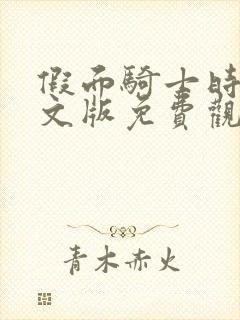 假面騎士時
文版免費觀
青木赤火